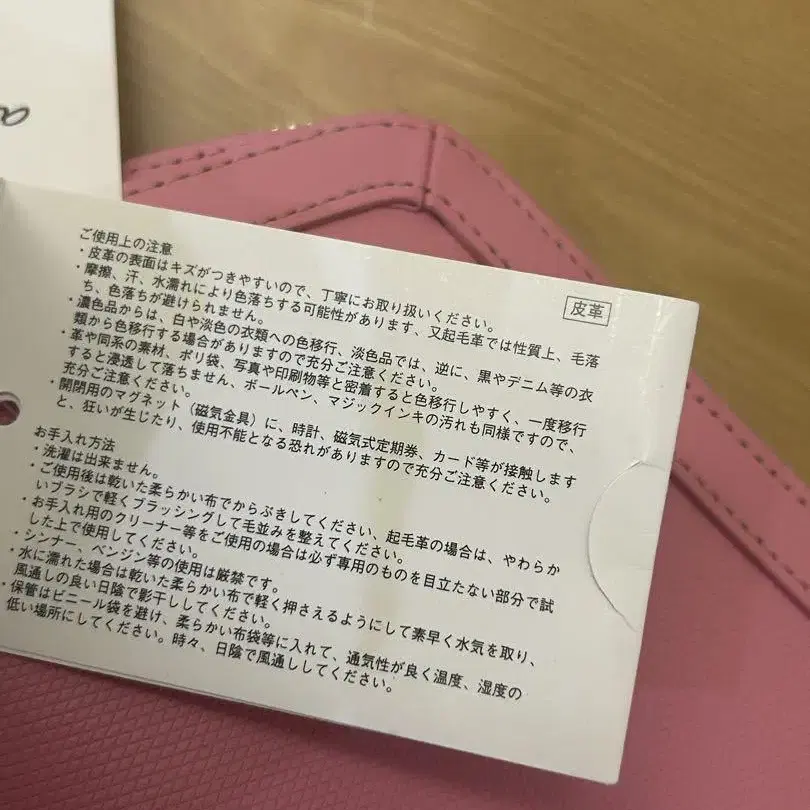 皮革
ご使用上の注意
・皮革の表面はキズがつきやすいので、丁寧にお取り扱いください。
・摩擦、汗、水濡れにより色落ちする可能性があります、又起毛革では性質上、毛落
ち、色落ちが避けられません。
・濃色品からは、白や淡色の衣類への色移行、淡色品では、逆に、黒やデニム等の衣
類から色移行する場合がありますので充分ご注意ください。
・革や同系の素材、ポリ袋、写真や印刷物等と密着すると色移行しやすく、一度移行
すると浸透して落ちません、ボールペン、マジックインキの汚れも同様ですので、
充分ご注意ください。
・開閉用のマグネット（磁気金具）に、時計、磁気式定期券、カード等が接触します
と、狂いが生じたり、使用不能となる恐れがありますので充分ご注意ください。
お手入れ方法
・洗濯は出来ません。
・ご使用後は乾いた柔らかい布でからぶきしてください、起毛革の場合は、やわらか
いブラシで軽くブラッシングして毛並みを整えてください。
・お手入れ用のクリーナー等をご使用の場合は必ず専用のものを目立たない部分で試
した上で使用してください。
・シンナー、ベンジン等の使用は厳禁です。
・水に濡れた場合は乾いた柔らかい布で軽く押さえるようにして素早く水気を取り、
風通しの良い日陰で影干ししてください。
・保管はビニール袋を避け、柔らかい布袋等に入れて、通気性が良く温度、湿度の
低い場所にしてください。時々、日陰で風通ししてください。